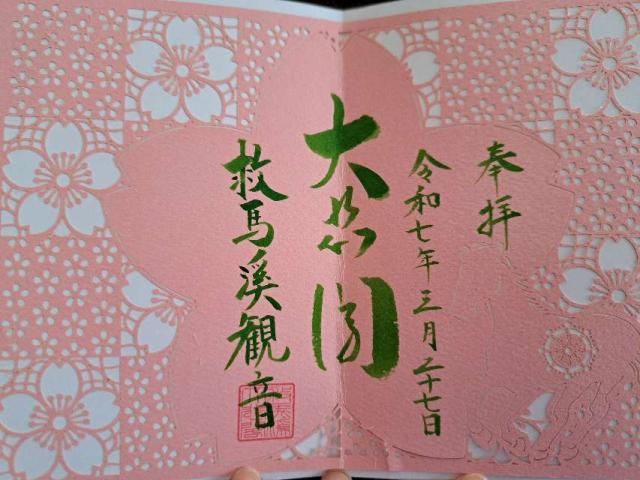 奉拝
令和七年三月二十七日
大悲閣
救馬溪観音